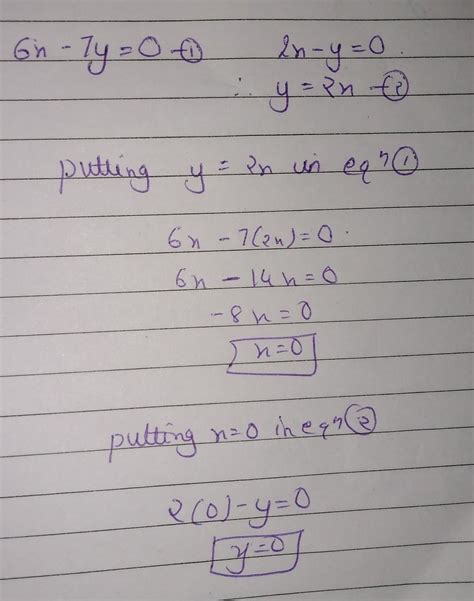 6x - 7y = 0 -① 2x - y = 0.
∴ y = 2x -②
putting y = 2x in eqⁿ ①
6x - 7(2x) = 0.
6x - 14x = 0
-8x = 0
x = 0
putting x = 0 in eqⁿ ②
2(0) - y = 0
y = 0